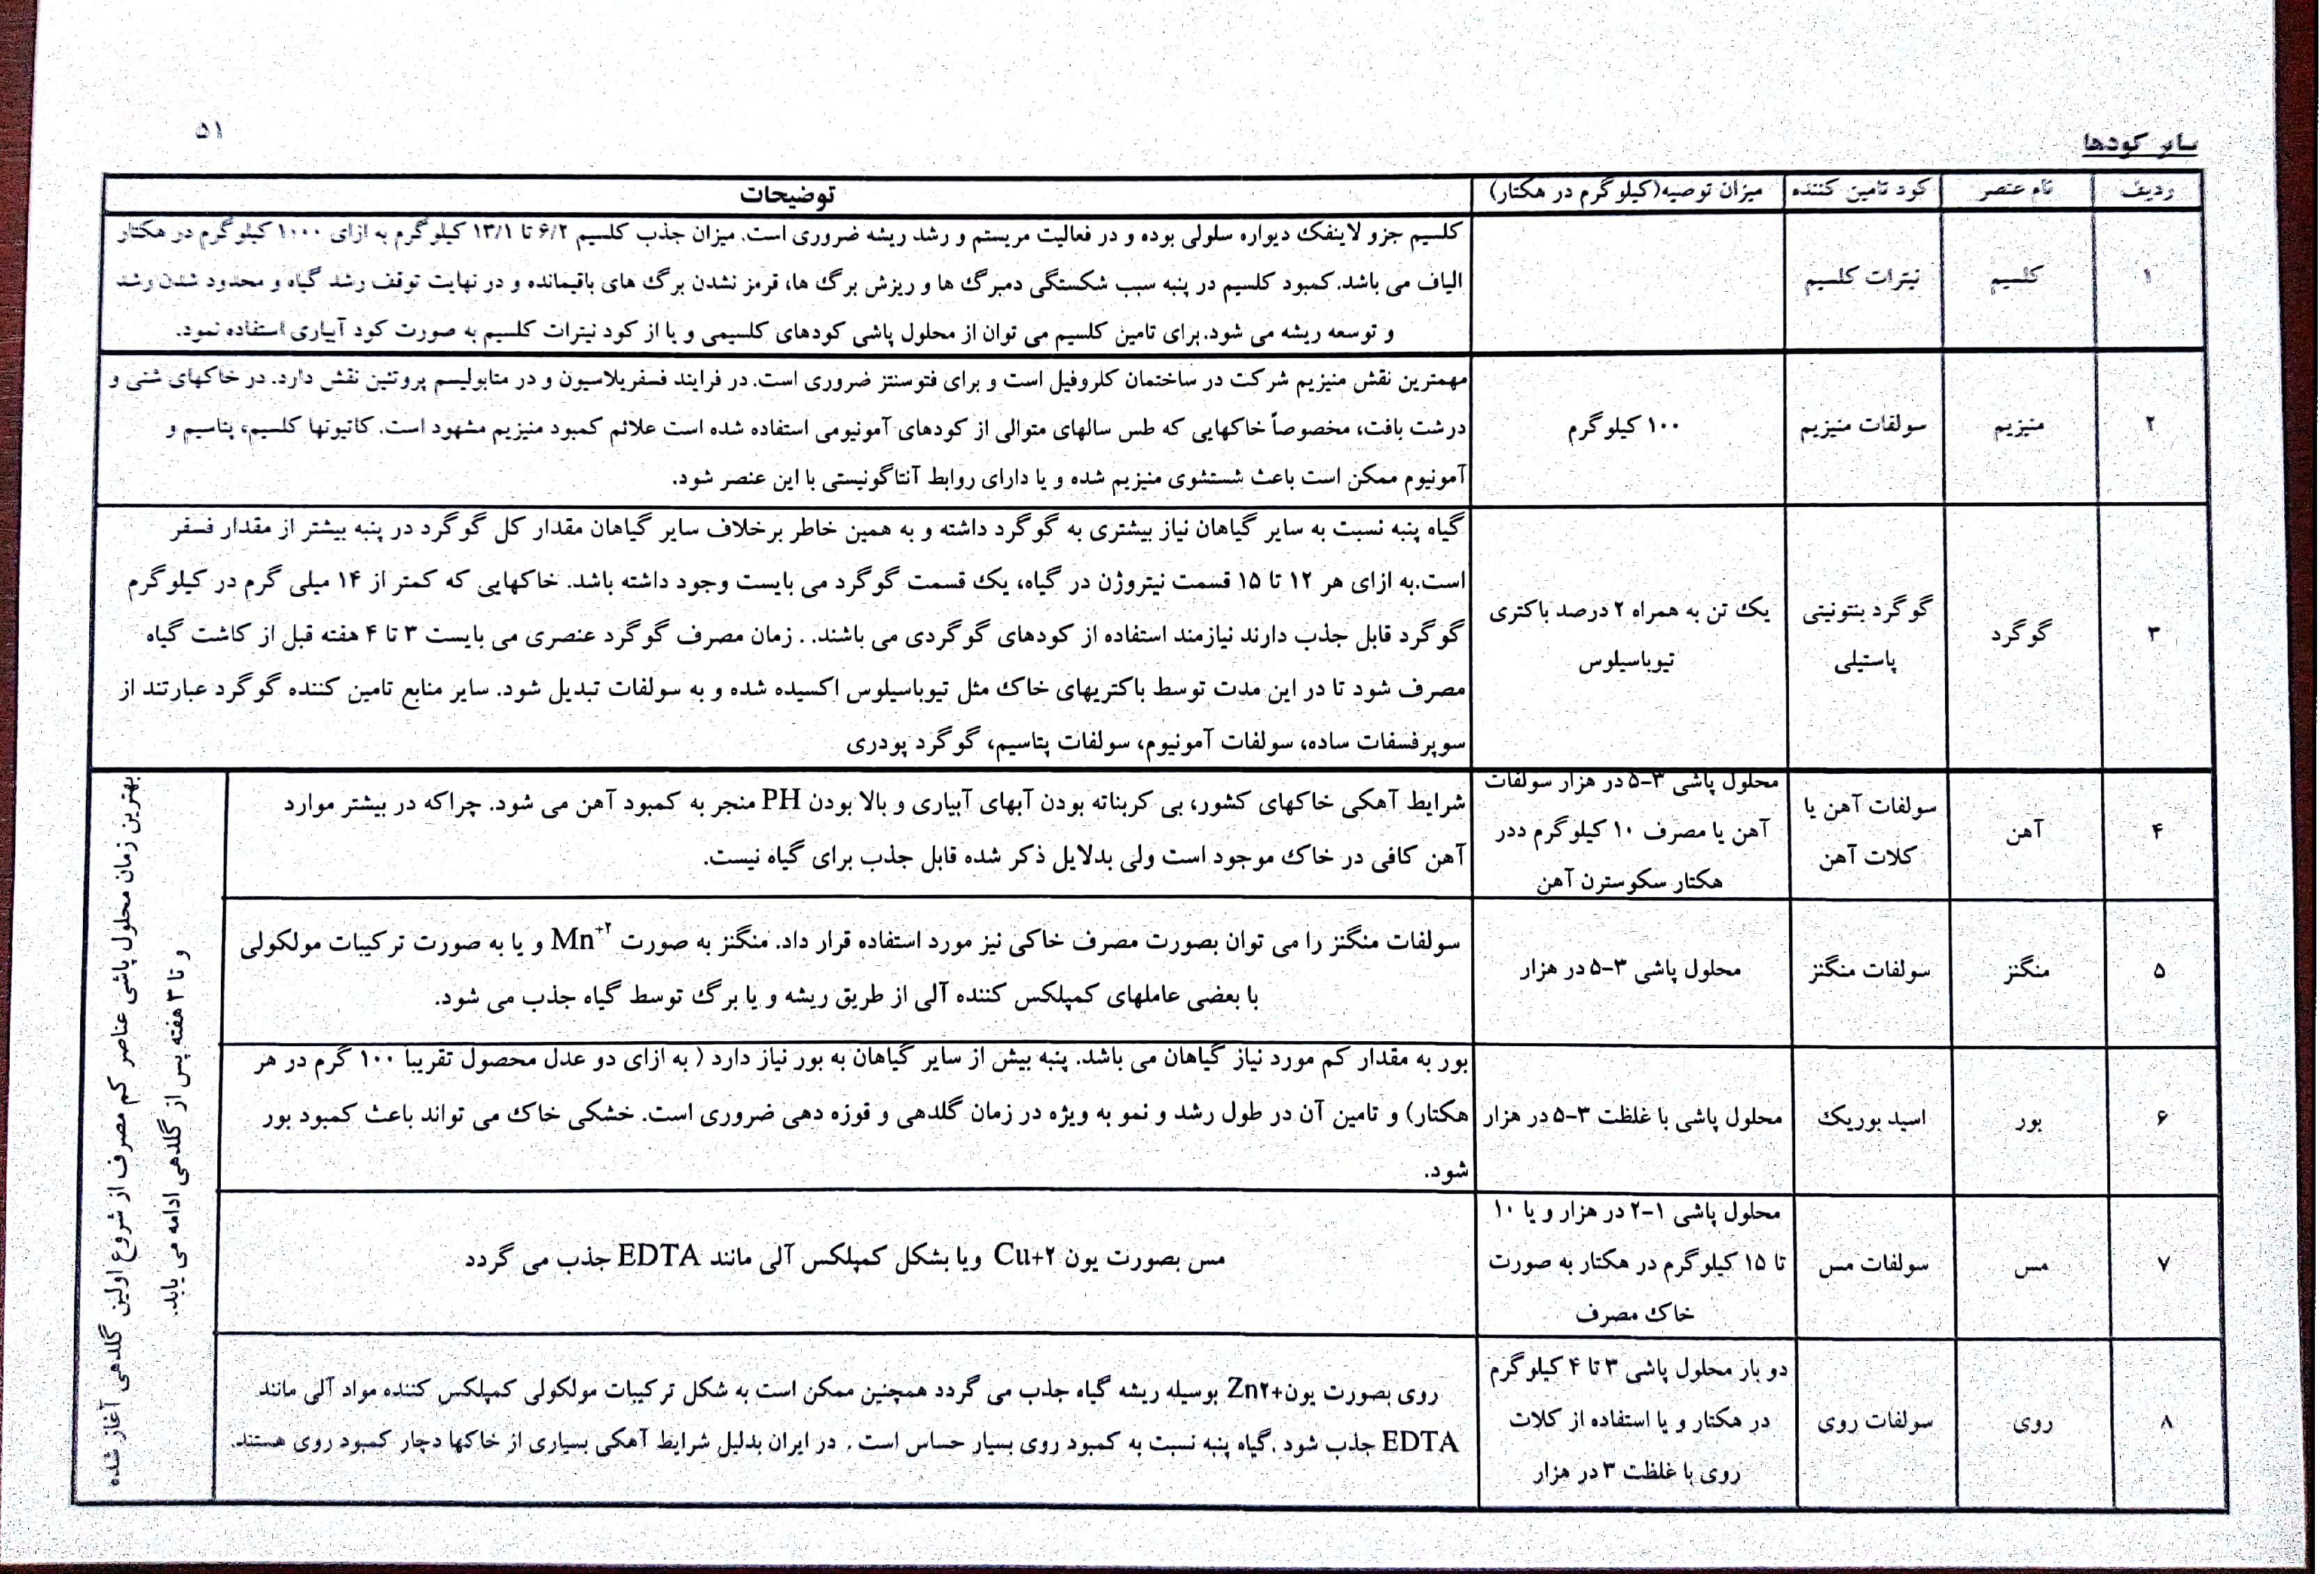 ۵۱
سایر کودها
ردیف
نام عنصر
کود تامین کننده
میزان توصیه(کیلوگرم در هکتار)
توضیحات
۱
کلسیم
نیترات کلسیم
کلسیم جزو لاینفک دیواره سلولی بوده و در فعالیت مریستم و رشد ریشه ضروری است. میزان جذب کلسیم ۶/۲ تا ۱۳/۱ کیلوگرم به ازای ۱۰۰۰ کیلوگرم در هکتار
الیاف می باشد. کمبود کلسیم در پنبه سبب شکستگی دمبرگ ها و ریزش برگ ها، قرمز نشدن برگ های باقیمانده و در نهایت توقف رشد گیاه و محدود شدن رشد
و توسعه ریشه می شود. برای تامین کلسیم می توان از محلول پاشی کودهای کلسیمی و یا از کود نیترات کلسیم به صورت کود آبیاری استفاده نمود.
۲
منیزیم
سولفات منیزیم
۱۰۰ کیلوگرم
مهمترین نقش منیزیم شرکت در ساختمان کلروفیل است و برای فتوسنتز ضروری است. در فرایند فسفریلاسیون و در متابولیسم پروتئین نقش دارد. در خاکهای شنی و
درشت بافت، مخصوصاً خاکهایی که طس سالهای متوالی از کودهای آمونیومی استفاده شده است علائم کمبود منیزیم مشهود است. کاتیونها کلسیم، پتاسیم و
آمونیوم ممکن است باعث شستشوی منیزیم شده و یا دارای روابط آنتاگونیستی با این عنصر شود.
۳
گوگرد
گوگرد بنتونیتی
پاستیلی
یک تن به همراه ۲ درصد باکتری
تیوباسیلوس
گیاه پنبه نسبت به سایر گیاهان نیاز بیشتری به گوگرد داشته و به همین خاطر برخلاف سایر گیاهان مقدار کل گوگرد در پنبه بیشتر از مقدار فسفر
است.به ازای هر ۱۲ تا ۱۵ قسمت نیتروژن در گیاه، یک قسمت گوگرد می بایست وجود داشته باشد. خاکهایی که کمتر از ۱۴ میلی گرم در کیلوگرم
گوگرد قابل جذب دارند نیازمند استفاده از کودهای گوگردی می باشند. . زمان مصرف گوگرد عنصری می بایست ۳ تا ۴ هفته قبل از کاشت گیاه
مصرف شود تا در این مدت توسط باکتریهای خاک مثل تیوباسیلوس اکسیده شده و به سولفات تبدیل شود. سایر منابع تامین کننده گوگرد عبارتند از
سوپرفسفات ساده، سولفات آمونیوم، سولفات پتاسیم، گوگرد پودری
۴
آهن
سولفات آهن یا
کلات آهن
محلول پاشی ۳-۵ در هزار سولفات
آهن یا مصرف ۱۰ کیلوگرم ددر
هکتار سکوسترن آهن
شرایط آهکی خاکهای کشور، بی کربناته بودن آبهای آبیاری و بالا بودن PH منجر به کمبود آهن می شود. چراکه در بیشتر موارد
آهن کافی در خاک موجود است ولی بدلایل ذکر شده قابل جذب برای گیاه نیست.
بهترین زمان محلول پاشی عناصر کم مصرف از شروع اولین گلدهی آغاز شده
و تا ۳ هفته پس از گلدهی ادامه می یابد.
۵
منگنز
سولفات منگنز
محلول پاشی ۳-۵ در هزار
سولفات منگنز را می توان بصورت مصرف خاکی نیز مورد استفاده قرار داد. منگنز به صورت Mn⁺² و یا به صورت ترکیبات مولکولی
با بعضی عاملهای کمپلکس کننده آلی از طریق ریشه و یا برگ توسط گیاه جذب می شود.
۶
بور
اسید بوریک
محلول پاشی با غلظت ۳-۵ در هزار
بور به مقدار کم مورد نیاز گیاهان می باشد. پنبه بیش از سایر گیاهان به بور نیاز دارد ( به ازای دو عدل محصول تقریبا ۱۰۰ گرم در هر
هکتار) و تامین آن در طول رشد و نمو به ویژه در زمان گلدهی و قوزه دهی ضروری است. خشکی خاک می تواند باعث کمبود بور
شود.
۷
مس
سولفات مس
محلول پاشی ۱-۲ در هزار و یا ۱۰
تا ۱۵ کیلوگرم در هکتار به صورت
خاک مصرف
مس بصورت یون Cu+۲ ویا بشکل کمپلکس آلی مانند EDTA جذب می گردد
۸
روی
سولفات روی
دو بار محلول پاشی ۳ تا ۴ کیلوگرم
در هکتار و یا استفاده از کلات
روی با غلظت ۳ در هزار
روی بصورت یون Zn۲+ بوسیله ریشه گیاه جذب می گردد همچنین ممکن است به شکل ترکیبات مولکولی کمپلکس کننده مواد آلی مانند
EDTA جذب شود .گیاه پنبه نسبت به کمبود روی بسیار حساس است . در ایران بدلیل شرایط آهکی بسیاری از خاکها دچار کمبود روی هستند.